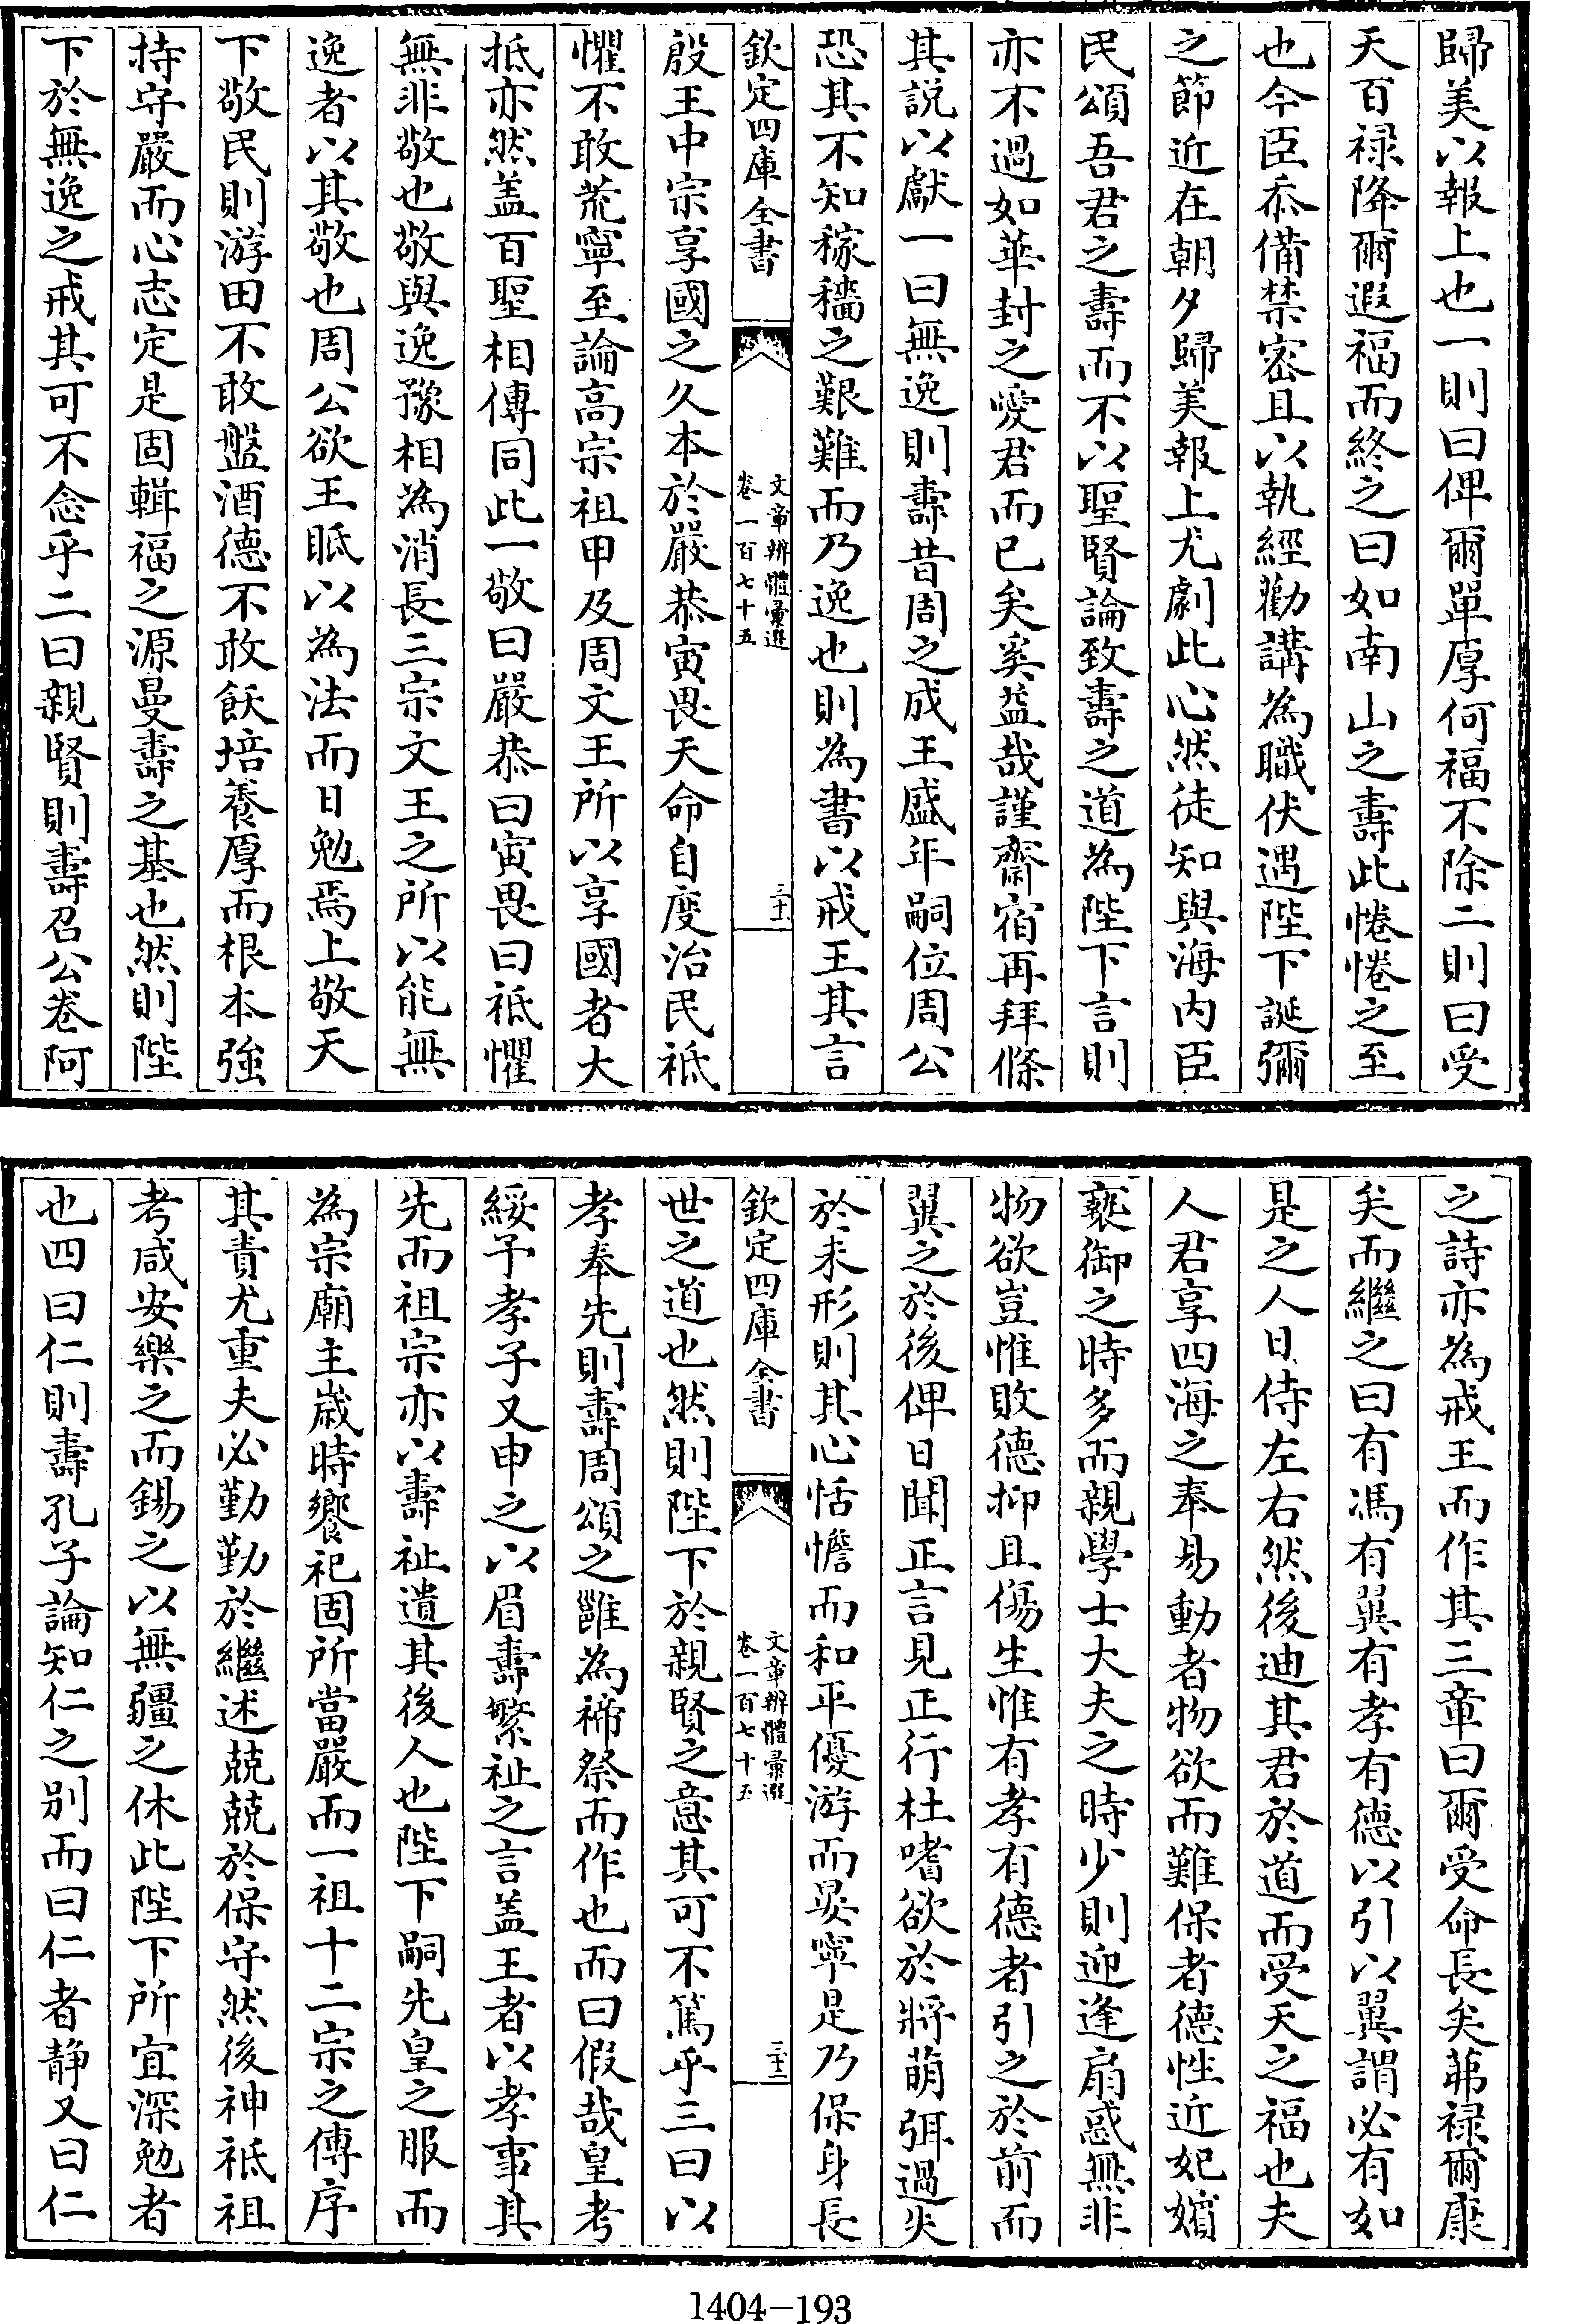 歸美以報上也一則曰俾爾單厚何福不除二則曰受
天百禄降爾遐福而終之曰如南山之壽此惓惓之至
也今臣忝備禁密且以執經勸講為職伏遇陛下誕彌
之節近在朝夕歸美報上尤劇此心然徒知與海内臣
民頌吾君之壽而不以聖賢論致壽之道為陛下言則
亦不過如華封之愛君而已矣奚益哉謹齋宿再拜條
其説以獻一曰無逸則壽昔周之成王盛年嗣位周公
恐其不知稼穡之艱難而乃逸也則為書以戒王其言
欽定四庫全書
文章辨體彚選
卷一百七十五
三十一
殷王中宗享國之久本於嚴恭寅畏天命自度治民祗
懼不敢荒寧至論高宗祖甲及周文王所以享國者大
抵亦然盖百聖相傳同此一敬曰嚴恭曰寅畏曰祗懼
無非敬也敬與逸豫相為消長三宗文王之所以能無
逸者以其敬也周公欲王眂以為法而日勉焉上敬天
下敬民則游田不敢盤酒德不敢飫培養厚而根本強
持守嚴而心志定是固輯福之源曼壽之基也然則陛
下於無逸之戒其可不念乎二曰親賢則壽召公卷阿
之詩亦為戒王而作其三章曰爾受命長矣茀禄爾康
矣而繼之曰有馮有翼有孝有德以引以翼謂必有如
是之人日侍左右然後迪其君於道而受天之福也夫
人君享四海之奉易動者物欲而難保者德性近妃嬪
褻御之時多而親學士大夫之時少則迎逢扇惑無非
物欲豈惟敗德抑且傷生惟有孝有德者引之於前而
翼之於後俾日聞正言見正行杜嗜欲於將萌弭過失
於未形則其心恬憺而和平優游而晏寧是乃保身長
欽定四庫全書
文章辨體彚選
卷一百七十五
三十二
世之道也然則陛下於親賢之意其可不篤乎三曰以
孝奉先則壽周頌之雝為禘祭而作也而曰假哉皇考
綏予孝子又申之以眉壽繁祉之言盖王者以孝事其
先而祖宗亦以壽祉遺其後人也陛下嗣先皇之服而
為宗廟主歲時饗祀固所當嚴而一祖十二宗之傳序
其責尤重夫必勤勤於繼述兢兢於保守然後神祗祖
考咸安樂之而錫之以無疆之休此陛下所宜深勉者
也四曰仁則壽孔子論知仁之别而曰仁者静又曰仁
1404－193